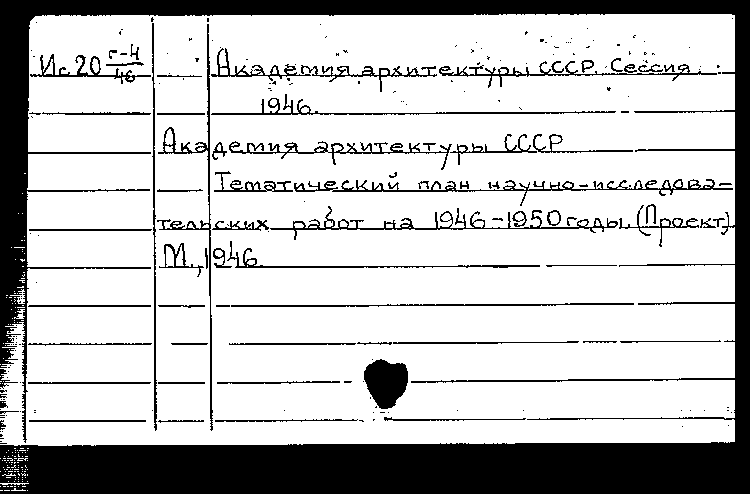 Ис 20 г-4/46
Академия архитектуры СССР. Сессия.
1946.
Академия архитектуры СССР
Тематический план научно-исследова-
тельских работ на 1946-1950 годы. (Проект).
М., 1946.